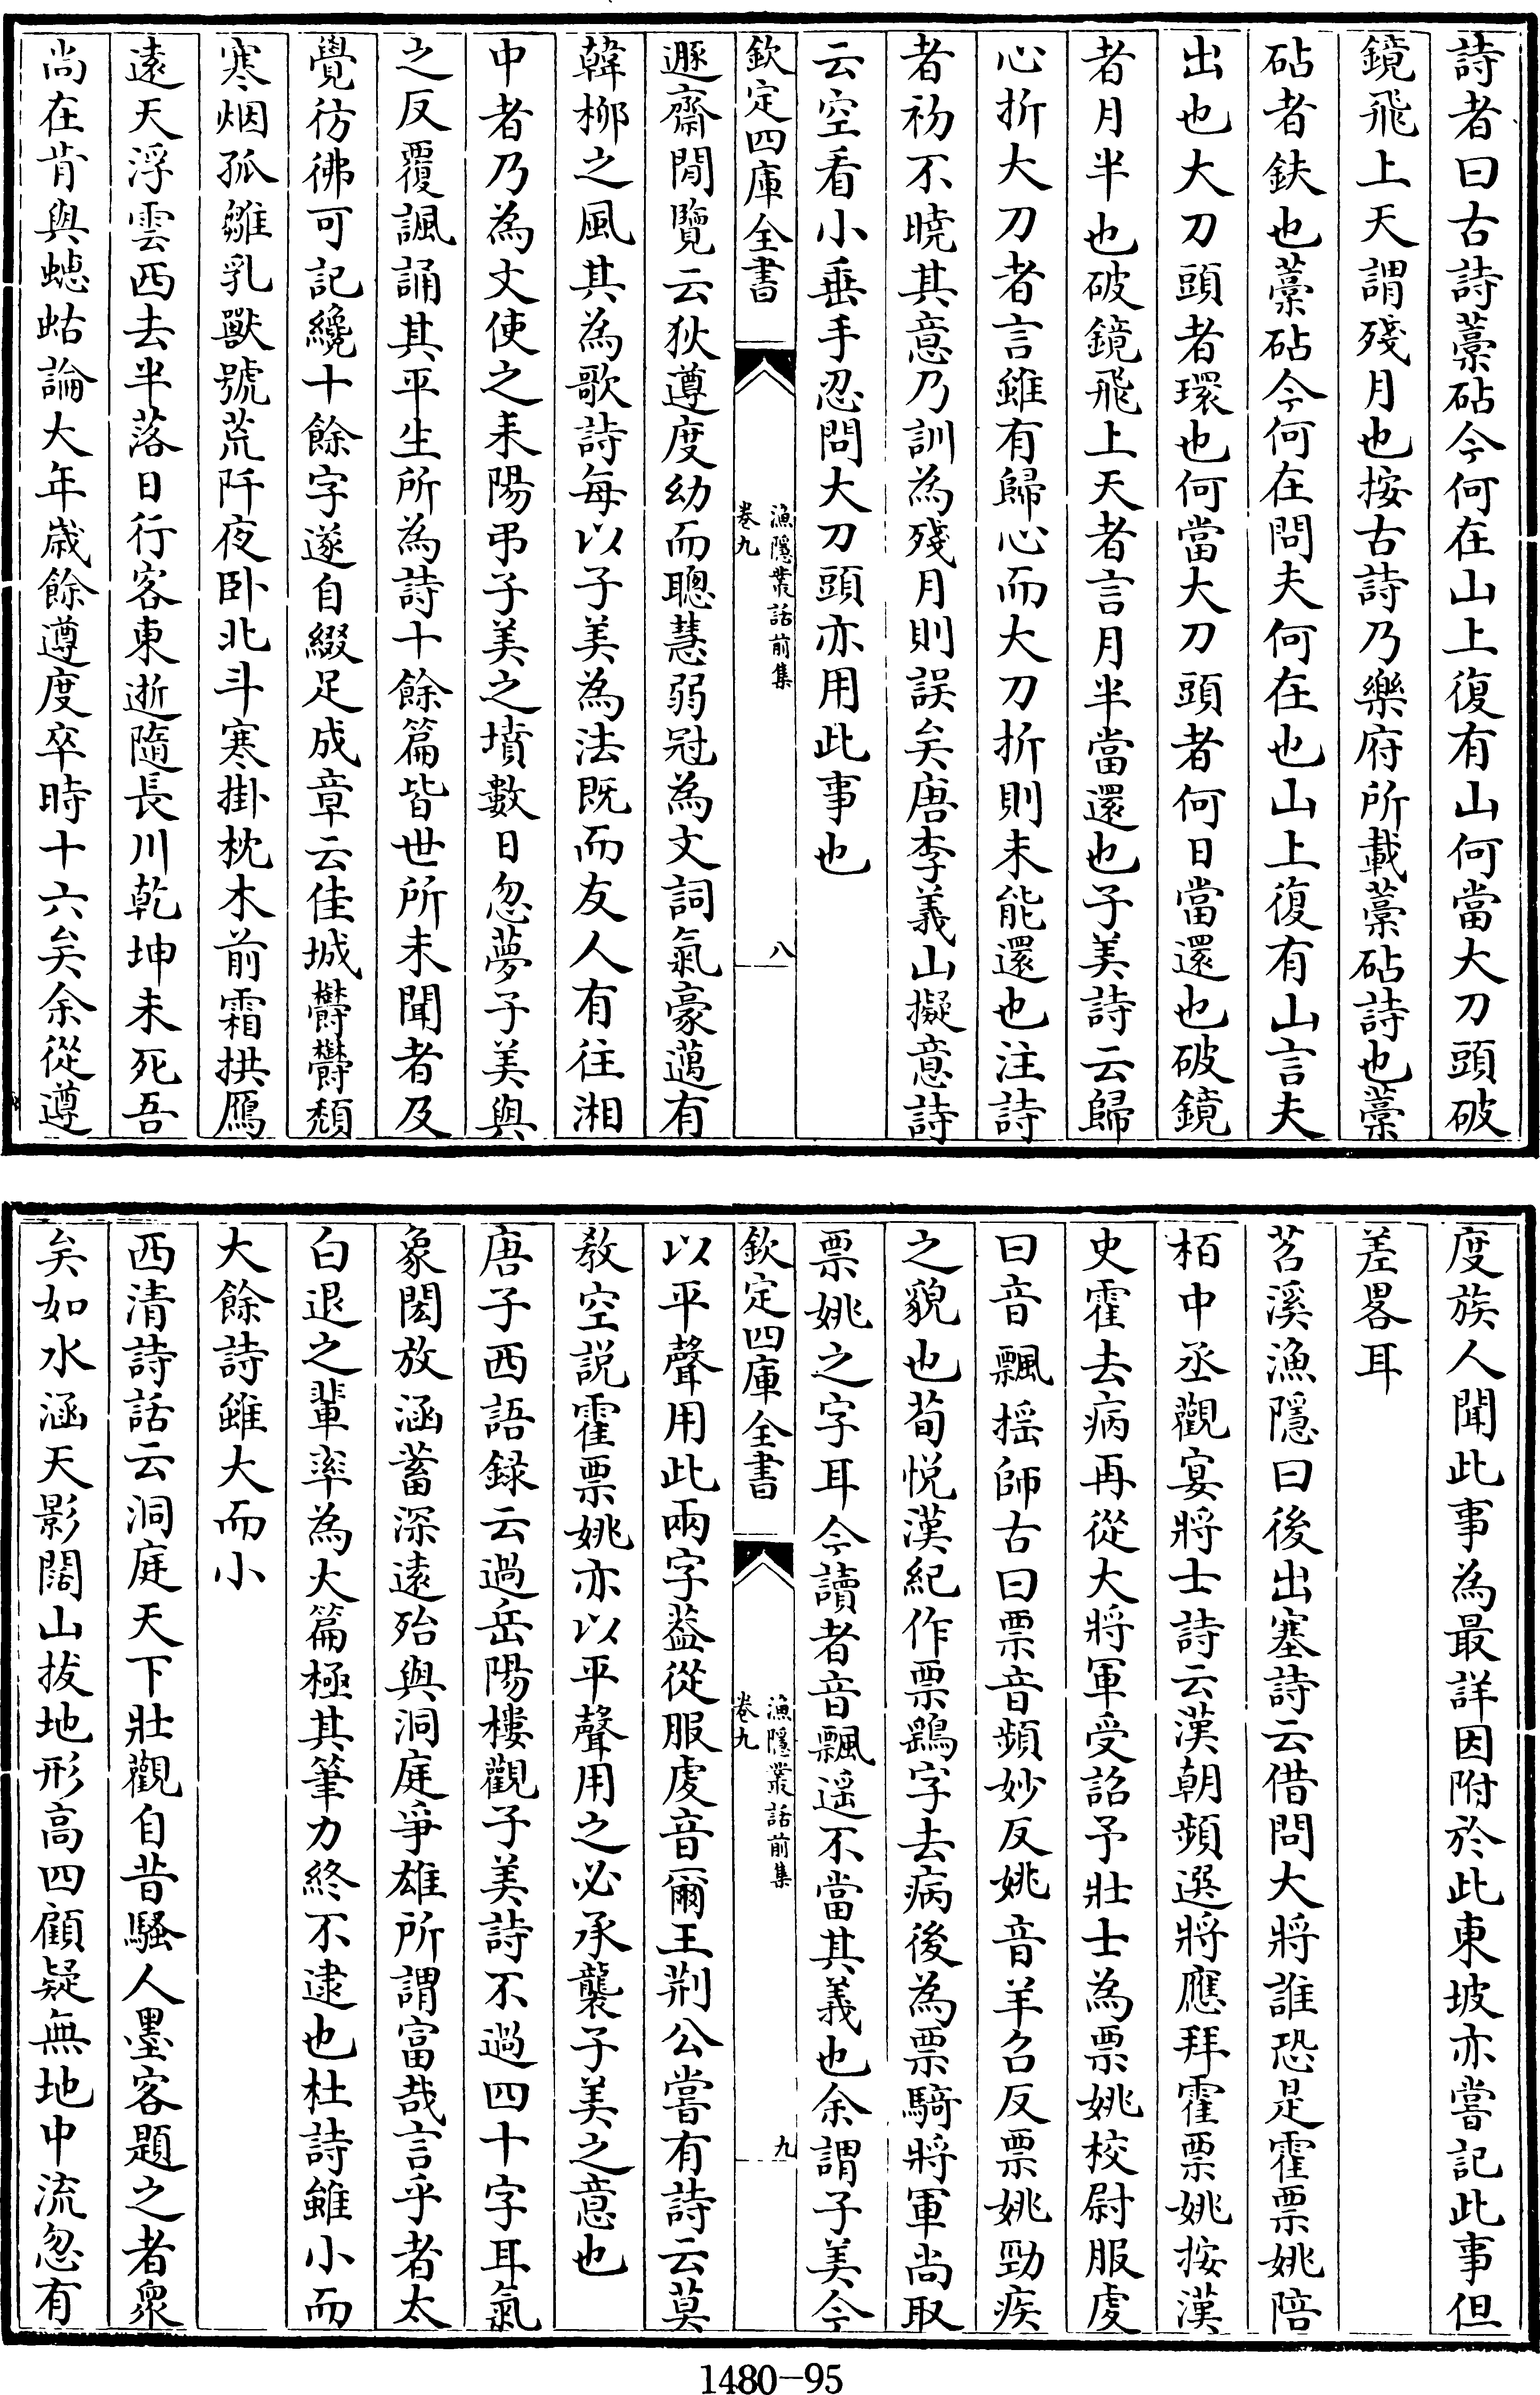 詩者曰古詩藁砧今何在山上復有山何當大刀頭破
鏡飛上天謂殘月也按古詩乃樂府所載藁砧詩也藁
砧者鈇也藁砧今何在問夫何在也山上復有山言夫
出也大刀頭者環也何當大刀頭者何日當還也破鏡
者月半也破鏡飛上天者言月半當還也子美詩云歸
心折大刀者言雖有歸心而大刀折則未能還也注詩
者初不曉其意乃訓為殘月則誤矣唐李義山擬意詩
云空看小垂手忍問大刀頭亦用此事也
欽定四庫全書
漁隱叢話前集
卷九
八
遯齋閒覽云狄遵度幼而聰慧弱冠為文詞氣豪邁有
韓柳之風其為歌詩每以子美為法既而友人有往湘
中者乃為文使之耒陽弔子美之墳數日忽夢子美與
之反覆諷誦其平生所為詩十餘篇皆世所未聞者及
覺彷彿可記纔十餘字遂自綴足成章云佳城鬱鬱頹
寒烟孤雛乳獸號荒阡夜卧北斗寒掛枕木前霜拱鴈
遠天浮雲西去半落日行客東逝隨長川乾坤未死吾
尚在肯與蟪蛄論大年歲餘遵度卒時十六矣余從遵
度族人聞此事為最詳因附於此東坡亦嘗記此事但
差畧耳
苕溪漁隱曰後出塞詩云借問大將誰恐是霍票姚陪
栢中丞觀宴將士詩云漢朝頻選將應拜霍票姚按漢
史霍去病再從大將軍受詔予壯士為票姚校尉服虔
曰音飄摇師古曰票音頻妙反姚音羊召反票姚勁疾
之貌也荀悦漢紀作票鷂字去病後為票騎將軍尚取
票姚之字耳今讀者音飄遥不當其義也余謂子美今
欽定四庫全書
漁隱叢話前集
卷九
九
以平聲用此兩字葢從服虔音爾王荆公嘗有詩云莫
教空説霍票姚亦以平聲用之必承襲子美之意也
唐子西語録云過岳陽樓觀子美詩不過四十字耳氣
象閎放涵蓄深遠殆與洞庭爭雄所謂富哉言乎者太
白退之輩率為大篇極其筆力終不逮也杜詩雖小而
大餘詩雖大而小
西清詩話云洞庭天下壯觀自昔騷人墨客題之者衆
矣如水涵天影闊山拔地形高四顧疑無地中流忽有
1480-95